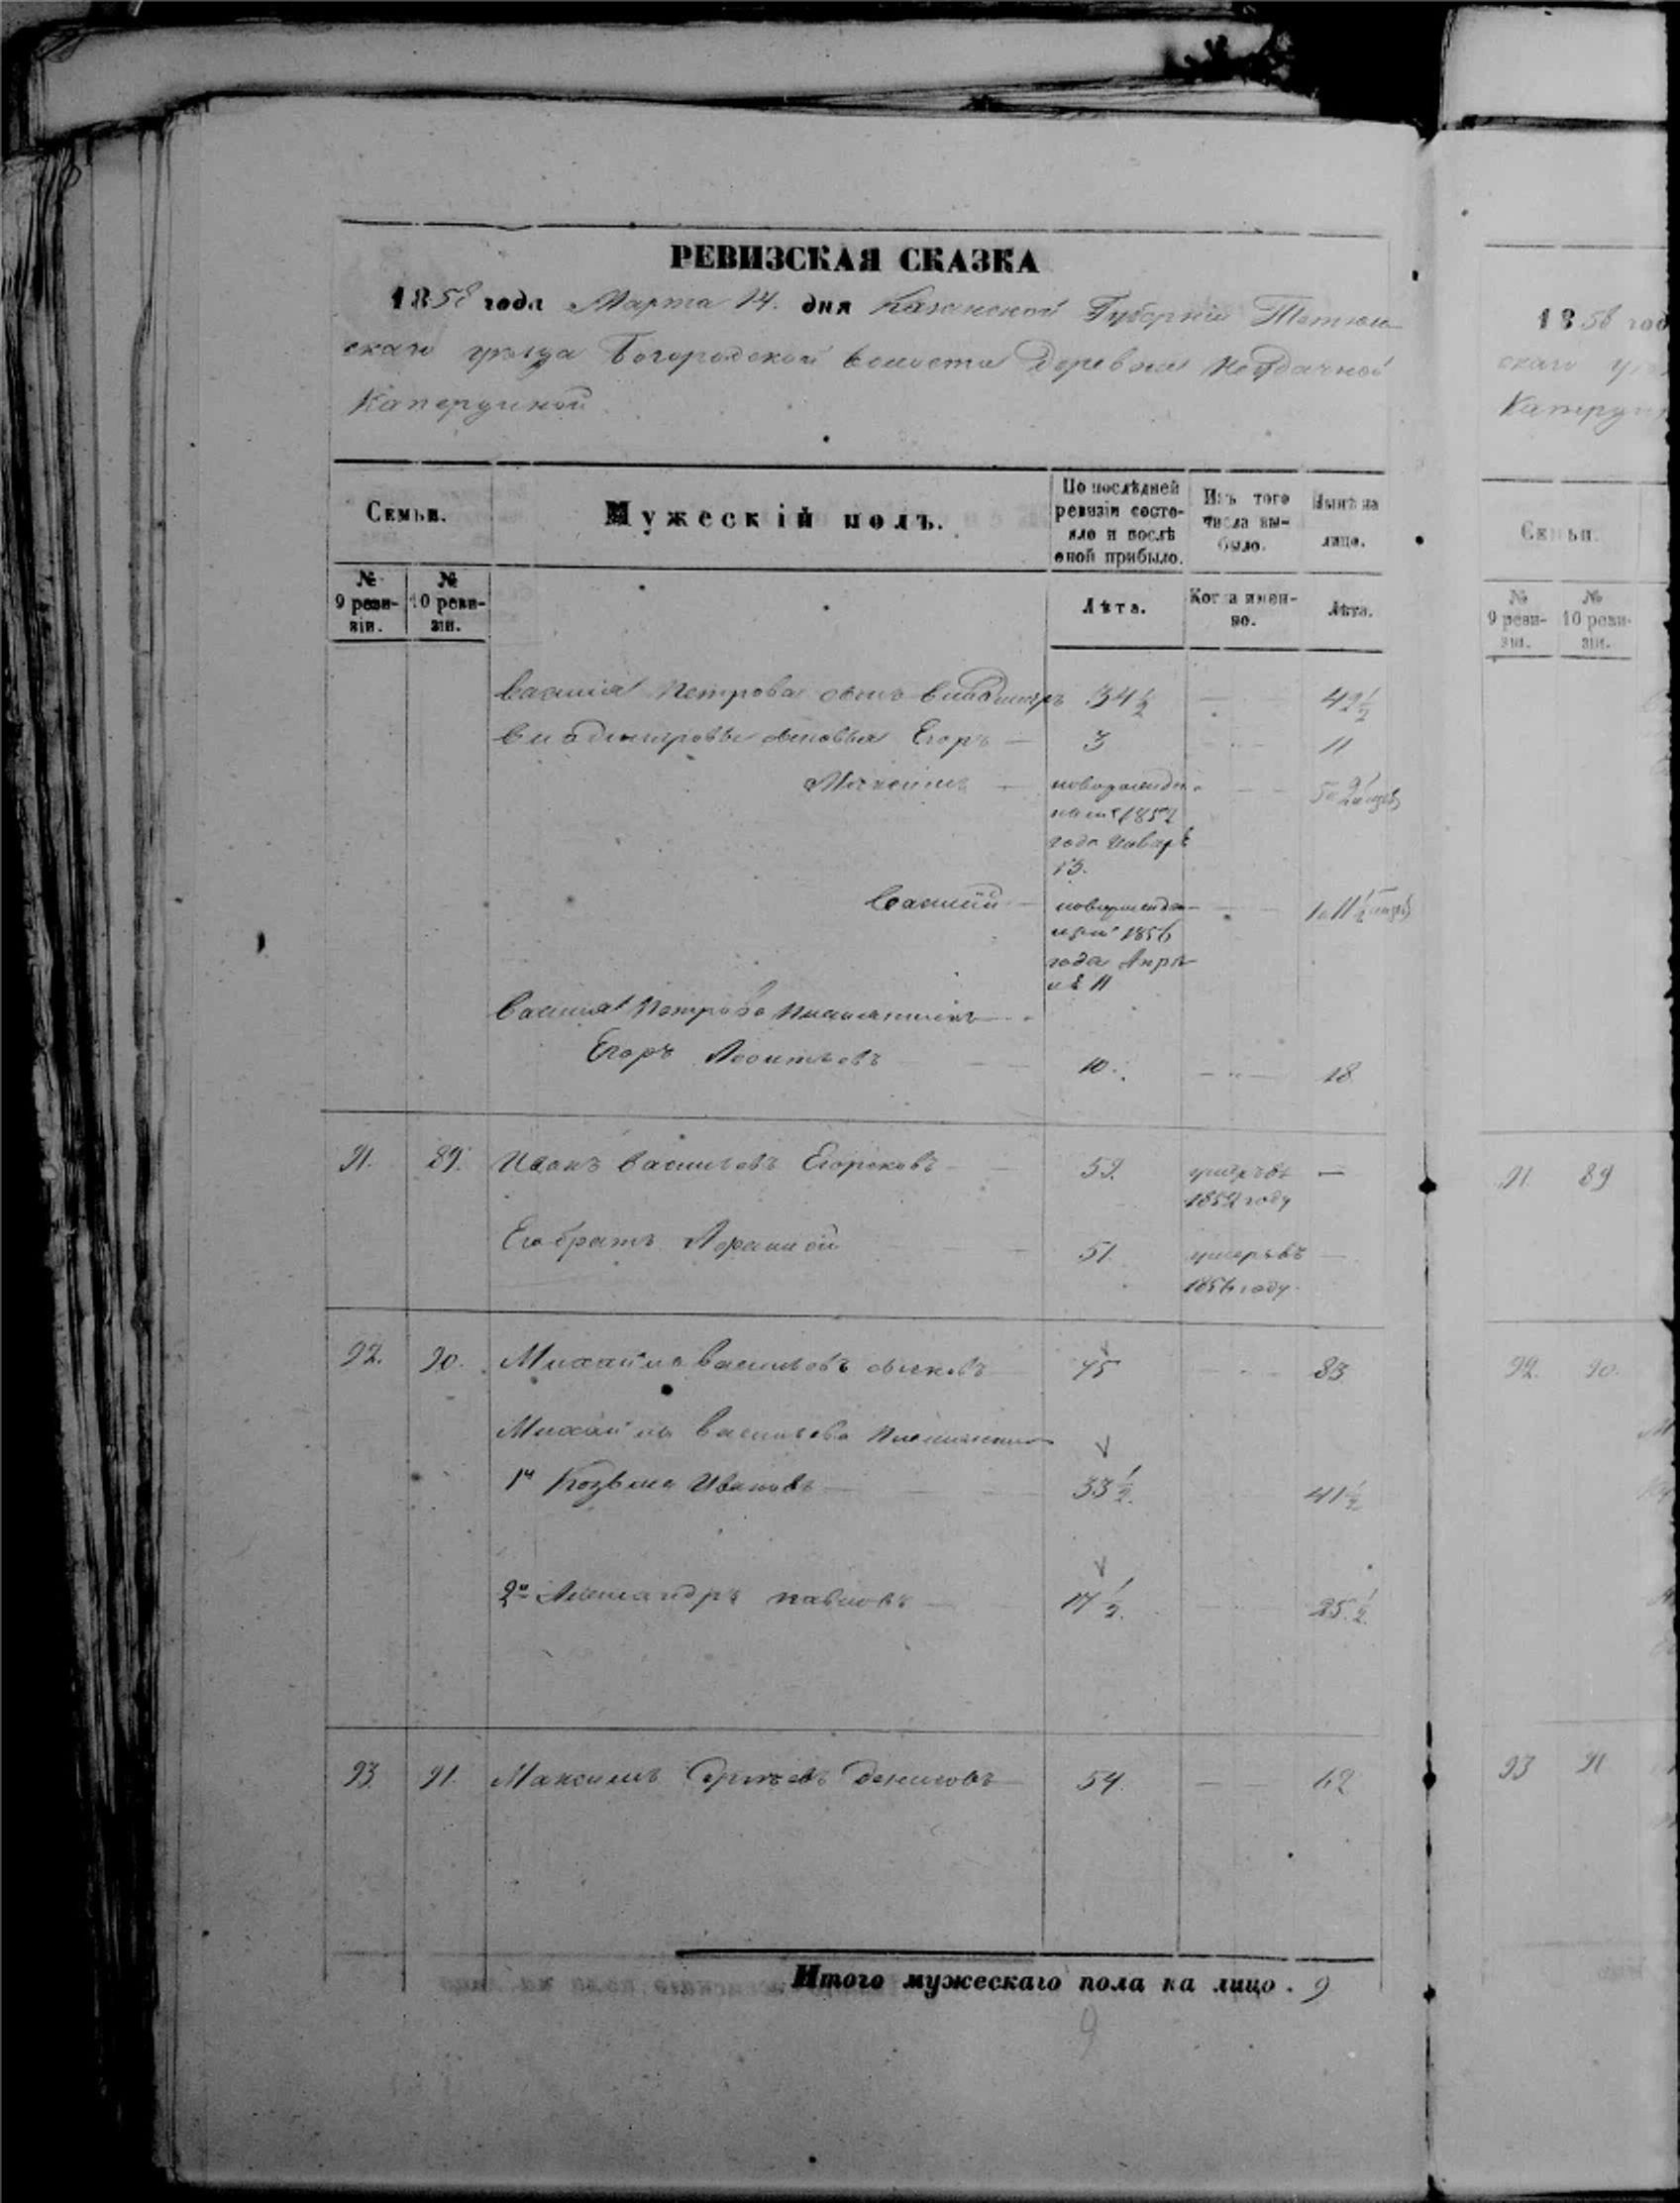 РЕВИЗСКАЯ СКАЗКА
1858 года Марта 14. дня Казанской Губернiи Тетюш-
скаго уѣзда Богородской волости Деревни
Каперулиной
Семьи.
Мужескій полъ.
По послѣдней ревизіи состо- яло и послѣ оной прибыло.
Изъ того числа вы- было.
Нынѣ на лицо.
№ 9 реви- зіи.
№ 10 реви- зіи.
Лѣта.
Когда имен- но.
Лѣта.
Василія Петрова сынъ Владимiръ 34½ — 42½
Владимiровы сыновья Егоръ — 3 — 11
Максимъ — новорожден-
1852
года Январѣ
13.
Василiй — новорожден-
1856
года Апрѣ-
лѣ 11
Василія Петрова племянникъ
Егоръ Леонтьевъ 10. — 18
91. 89. Иванъ Васильевъ Егорековъ 52. умеръ въ —
1852 году
Его братъ 51. умеръ въ —
1856 году.
92. 90. Михайла Васильевъ 75 — 83
Михайла Васильева племянники
1й Козьма Ивановъ 33½. 41½
2й Александръ Павловъ 17½. 25½.
93. 91. Максимъ Сергѣевъ Денисовъ 54. — 62
Итого мужескаго пола на лицо . 9
9
1858 год
скаго уѣз
Каперул
Семьи.
№ 9 реви- зіи.
№ 10 реви- зіи.
91. 89
92. 90.
93 91